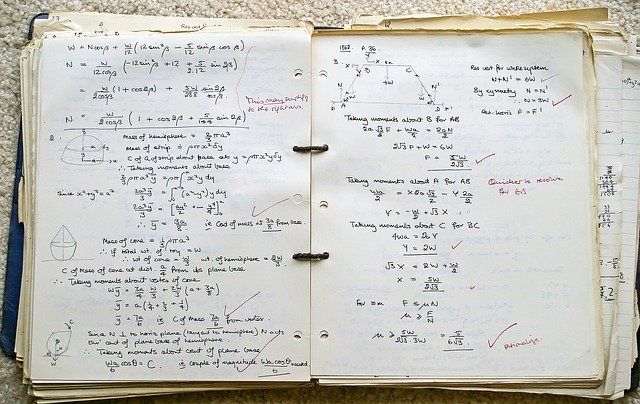 W = N cosβ + W/12 (12 sin²β − 5/12 sinβ cosβ)
N = W/12cosβ (−12 sin²β + 12 + 5/2·12 sin2β)
= W/2cosβ (1 + cos2β) + 5W/28 sinβ/cosβ
This may simplify
to the right ans.
N = W/2cosβ (1 + cos2β + sin2β)
2.
Mass of hemisphere = 2/3 ρπa³
Mass of strip = ρπx²δy
C of G of strip about base at y = ρπx²yδy
∴ Taking moments about base
2/3 ρπa³ȳ = ρπ∫x²y dy
since x²+y²=a²
2a³ȳ/3 = ∫(a²−y²)y dy
2a³ȳ/3 = [a²y²/2 − y⁴/4]
∴ ȳ = 3a/8 ie C of mass at 3a/8 from base.
Mass of cone = 1/3 ρπa³
∴ If total wt. of toy = W
∴ wt of cone = W/3 wt. of hemisphere = 2W/3
C of Mass of cone at dist. a/4 from its plane base
∴ Taking moments about vertex of cone
Wȳ = 3a/4 W/3 + 2W/3 (a + 3a/8)
ȳ = a(1/4 + 2/3 + 1/4)
ȳ = 7a/6 is C of mass 7a/6 from vertex.
Since N ⊥ to horiz plane (tangent to hemisphere) N acts
thru' cent of plane base of hemisphere
∴ Taking moments about cent of plane base
Wa/6 cosθ = C. is couple of magnitude Wa cosθ/6 needed
Res vert for whole system
N + N' = 6W
By symmetry N = N'
∴ N = 3W
Res. horiz F = F'
Taking moments about B for AB
2a√3/2 F + Wa/2 = 2aN/2
2√3 F + W = 6W
F = 5W/2√3
Taking moments about A for AB
Wa/2 = X2a√3/2 − Y 2a/2
Quicker to resolve
for AB
Y = −W/2 + √3X
Taking moments about C for BC
4Wa = 2aY
Y = 2W
√3 X = 2W + W/2
X = 5W/2√3
for F ≤ μN
μ ≥ F/N
μ ≥ 5W/2√3·3W = 5/6√3